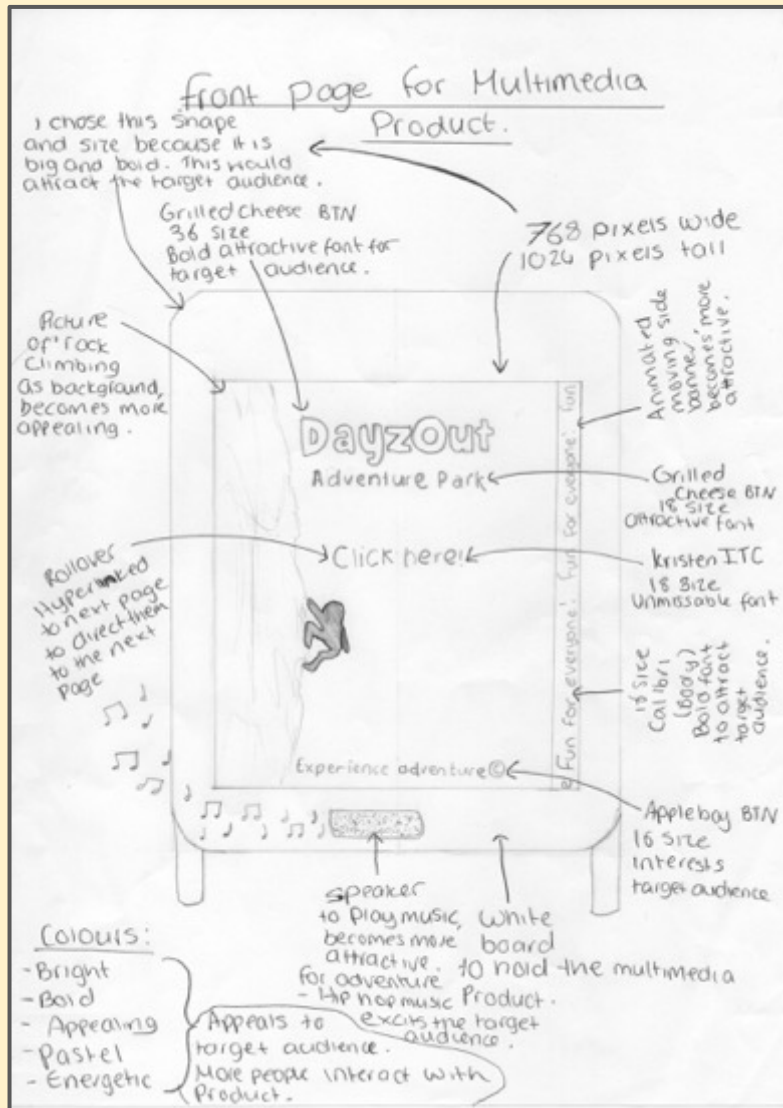 front page for Multimedia
Product.
I chose this shape
and size because it is
big and bold. This would
attract the target audience.
Grilled Cheese BTN
36 size
Bold attractive font for
target audience.
768 pixels wide
1024 pixels tall
Picture
of rock
climbing
as background,
becomes more
appealing.
Animated
moving side
banner,
becomes more
attractive.
DayzOut
Adventure Park
Grilled
Cheese BTN
18 size
attractive font
Click here!
Kristen ITC
18 size
Unmissable font
Rollover
Hyperlinked
to next page
to direct them
to the next
page
e Fun for everyone! Fun for everyone! Fun
18 size
Calibri
(Body)
Bold font
to attract
target
audience.
Experience adventure©
Appleboy BTN
16 size
interests
target audience
speaker
to play music,
becomes more
attractive.
for adventure
- Hip hop music
excits the target
audience.
White
board
to hold the multimedia
Product.
Colours:
-Bright
-Bold
- Appealing
-Pastel
- Energetic
Appeals to
target audience.
More people interact with
Product.